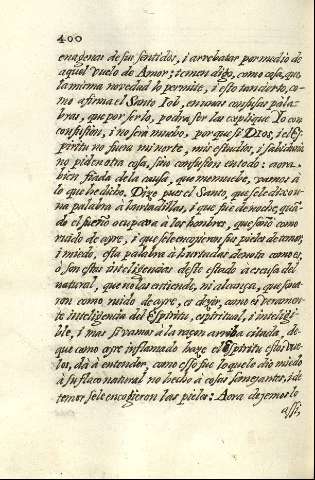 400
enagenar de sus sentidos, i arrebatar por medio de
aquel vuelo de Amor; temen digo, como cosa, que
la misma novedad lo permite, i esto tan cierto, co-
mo afirma el Santo Iob, en unas confusas pala-
bras, que por serlo, podra ser las explique Io con
confusion, i no sera mucho, por que si DIOS, i el Es
piritu no fuera mi norte, mis estudios, i sabiduria
no piden otra cosa, sino confusion en todo: aora
bien fiada de la causa, que me mueve, vamos à
lo que he dicho. Dize pues el Santo, que se le dixo u-
na palabra à hurtadillas, i que fue de noche, quã
do el sueño ocupava à los hombres, que sonò como
ruido de ayre, i que se le encogieron sus pieles de temor,
i miedo, esta palabra à hurtadas denota como es,
ò son estas inteligencias deste estado à escusa del
natural, que no las entiende, ni alcança, que sona
ron como ruido de ayre, es dezir, como es veramen
te inteligencia del Espiritu, espiritual, i inteligi
ble, i mas si vamos à la razon arriba citada, de
que como ayre inflamado haze el Espiritu estos vue
los, dà à entender, como esso fue lo que le dio miedo
à su flaco natural no hecho à cosas semejantes, i de
temor se le encogieron las pieles: Aora dejemos lo
assi,